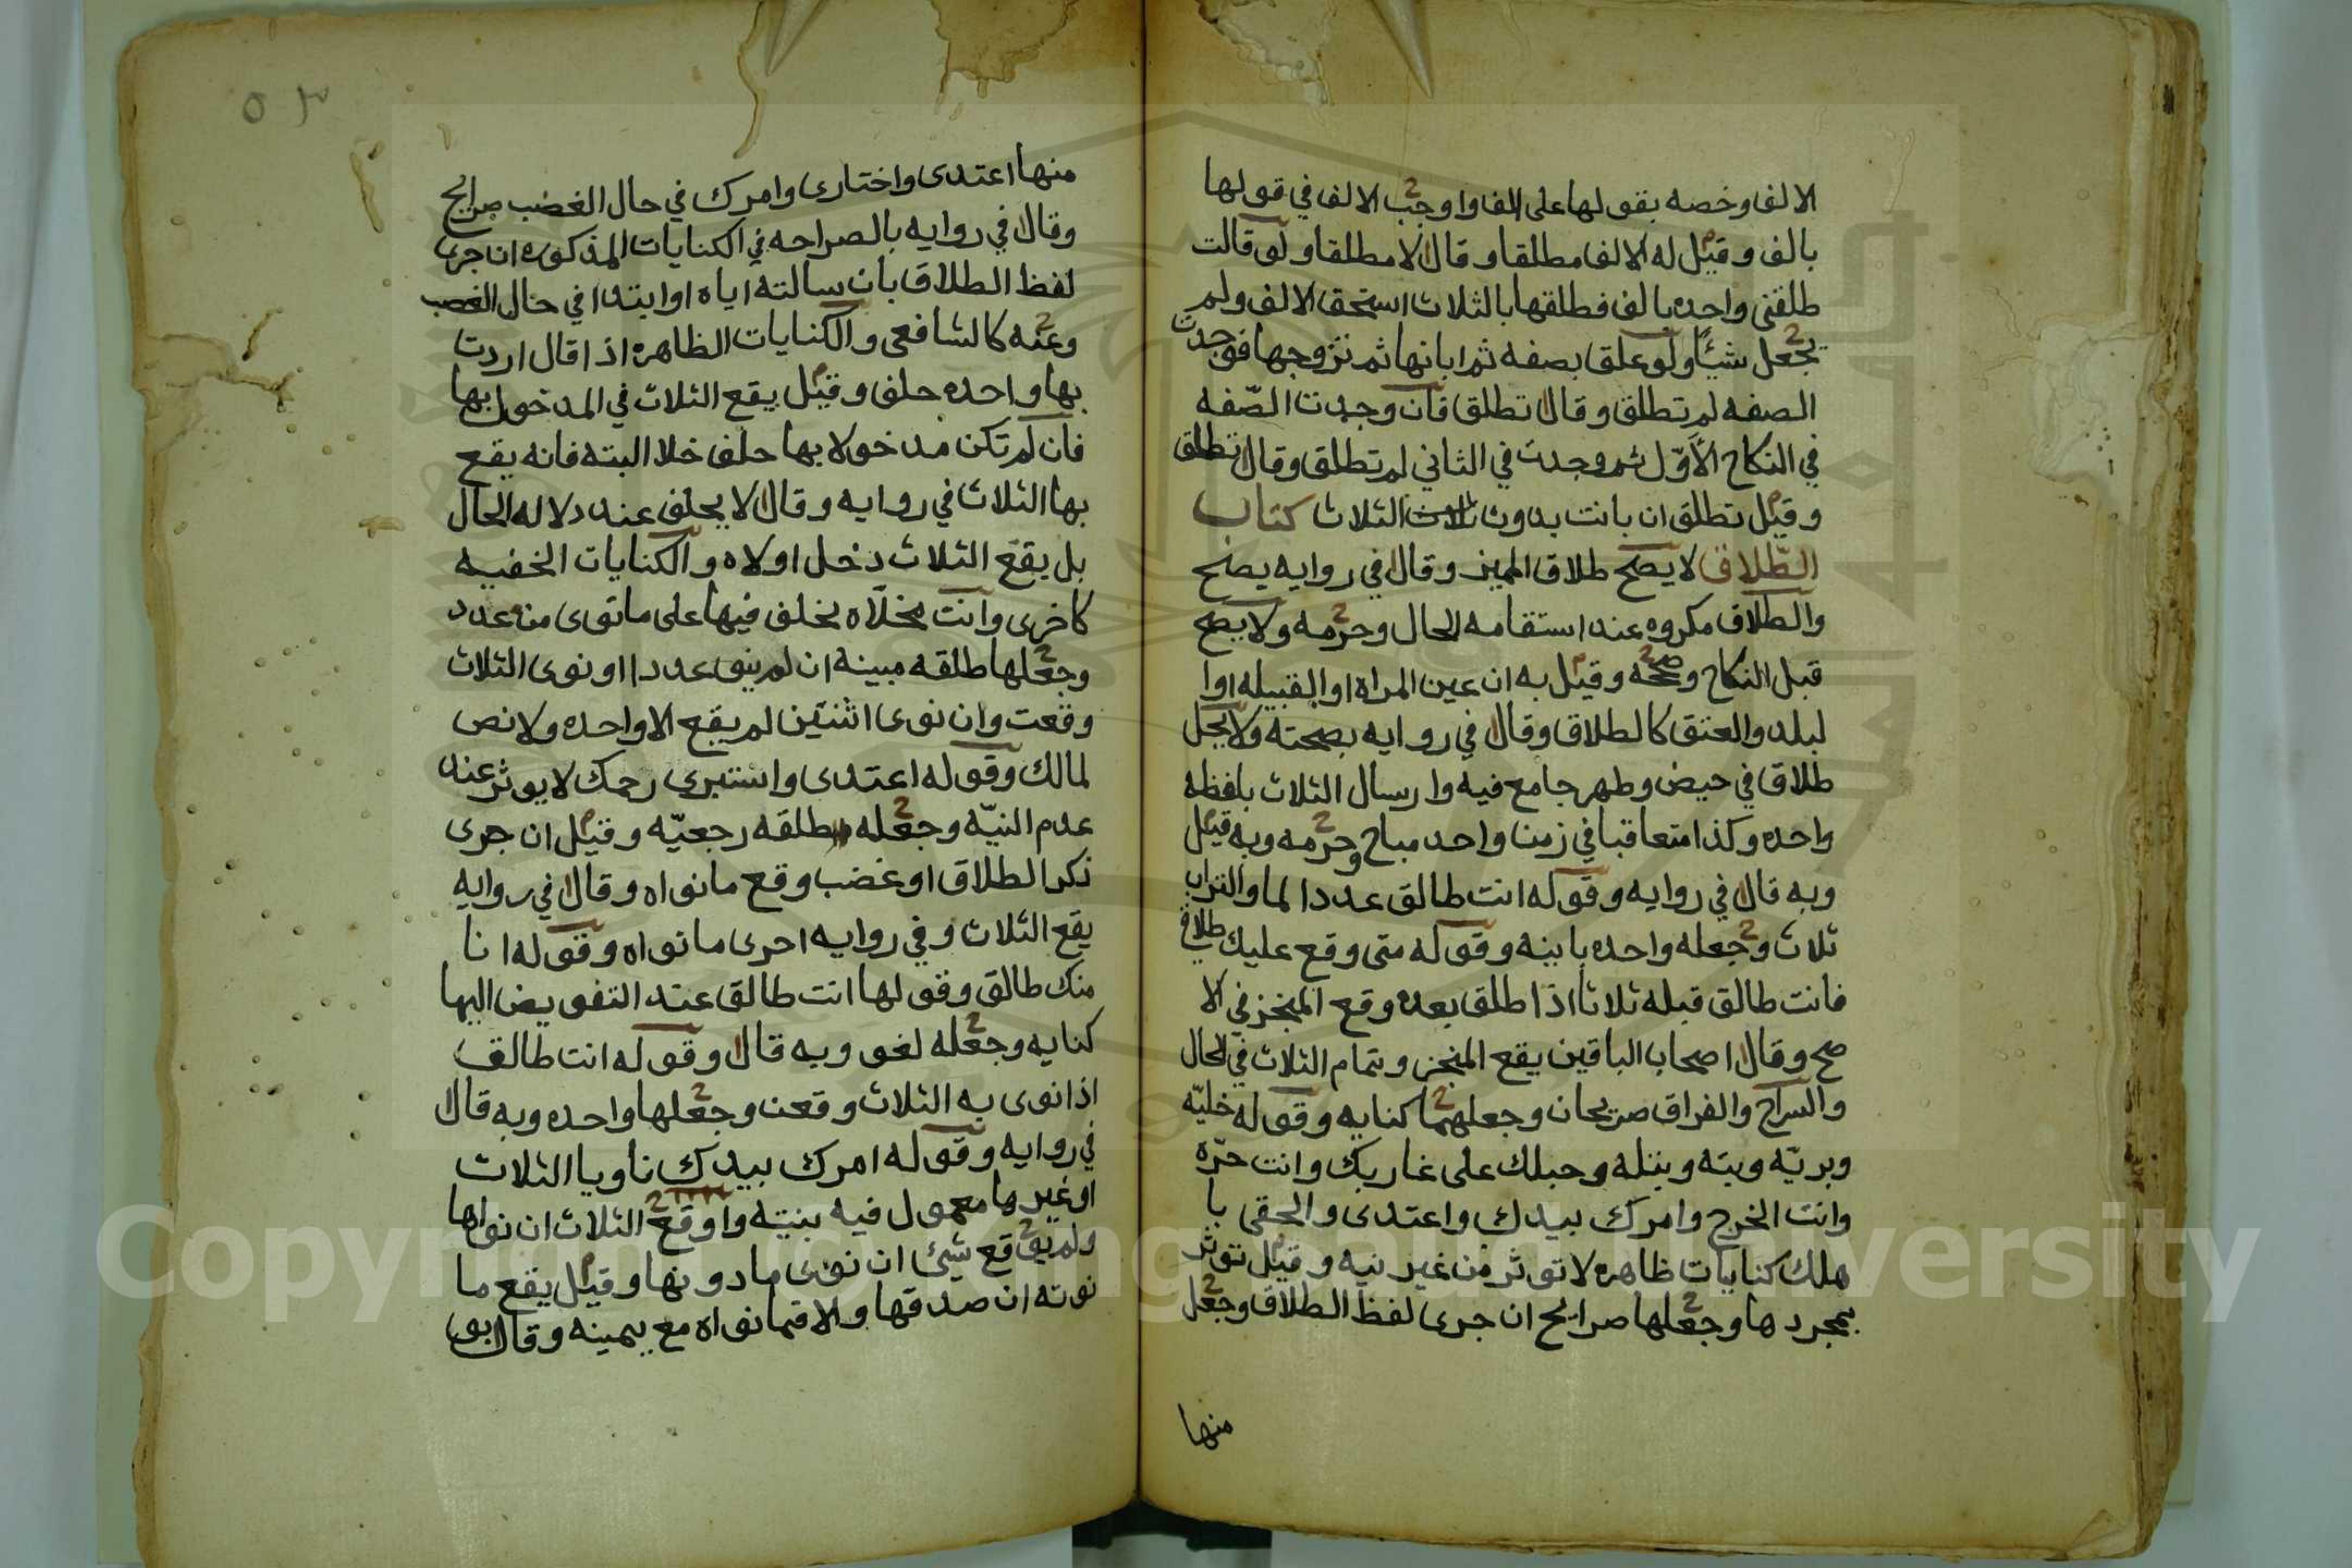 الالف وخصه بقولها على الف واوجب الالف في قولها
بالف وقيل له الالف مطلقا وقال لا مطلقا ولو قالت
طلقني واحده بالف فطلقها بالثلاث استحق الالف ولم
يجعل شيئا ولو علق بصفه ثم ابانها ثم تزوجها فوجدت
الصفه لم تطلق وقال تطلق فان وجدت الصّفه
في النكاح الأوّل ثم وجدت في الثاني لم تطلق وقال تطلق
وقيل تطلق ان بانت بدون الثلاث كتاب
الطّلاق لا يصح طلاق المميز وقال في روايه يصح
والطلاق مكروه عند استقامه الحال وحرمه ولا يصح
قبل النكاح وصححه وقيل به ان عين المراه او القبيله او ا
لبلد والعتق كالطلاق وقال في روايه بصحته ولا يحل
طلاق في حيض وطهر جامع فيه وارسال الثلاث بلفظه
واحده وكذا متعاقبا في زمن واحد مباح وحرمه وبه قيل
وبه قال في روايه وقوله انت طالق عدد الما والتراب
ثلاث وجعله واحده باينه وقوله متى وقع عليك طلاق
فانت طالق قبله ثلاثا اذا طلق بعده وقع المنجز في الا
صح وقال اصحاب الباقين يقع المنجز وتمام الثلاث في الحال
والسراح والفراق صريحان وجعلهما كنايه وقوله خليّه
وبريّه وبته وبتله وحبلك على غاربك وانت حرّه
وانت الحرج وامرك بيدك واعتدى والحقى با
هلك كنايات ظاهره لا توثر من غير نيه وقيل توثر
بمجردها وجعلها صرايح ان جرى لفظ الطلاق وجعل
منها
٥٣
منها اعتدى واختارى وامرك في حال الغضب صرايح
وقال في روايه بالصراحه في الكنايات المذكوره ان جرى
لفظ الطلاق بان سالته اياه او ابتدا في حال الغضب
وعنه كالشافعى والكنايات الظاهره اذا قال اردت
بها واحده حلف وقيل يقع الثلاث في المدخول بها
فان لم تكن مدخولا بها حلف خلا البته فانه يقع
بها الثلاث في روايه وقال لا يحلف عند دلاله الحال
بل يقع الثلاث دخل اولاه والكنايات الخفيه
كاخرى وانت مخلّاه يحلف فيها على ما نوى من عدد
وجعلها طلقه مبينه ان لم ينو عددا او نوى الثلاث
وقعت وان نوى اثنتين لم يقع الا واحده ولا نص
لمالك وقوله اعتدى واستبرى رحمك لا يوثر عند
عدم النيّه وجعله طلقه رجعيّه وقيل ان جرى
ذكر الطلاق او غضب وقع ما نواه وقال في روايه
يقع الثلاث وفي روايه اخرى ما نواه وقوله انا
منك طالق وقولها انت طالق عند التفويض اليها
كنايه وجعله لغو وبه قال وقوله انت طالق
اذا نوى به الثلاث وقعن وجعلها واحده وبه قال
في روايه وقوله امرك بيدك ناويا الثلاث
او غيرها معمول فيه بنيته واوقع الثلاث ان نواها
ولم يوقع شيئ ان نوى ما دونها وقيل يقع ما
نوته ان صدقها والا فما نواه مع يمينه وقال ابو
Copyright © King Saud University